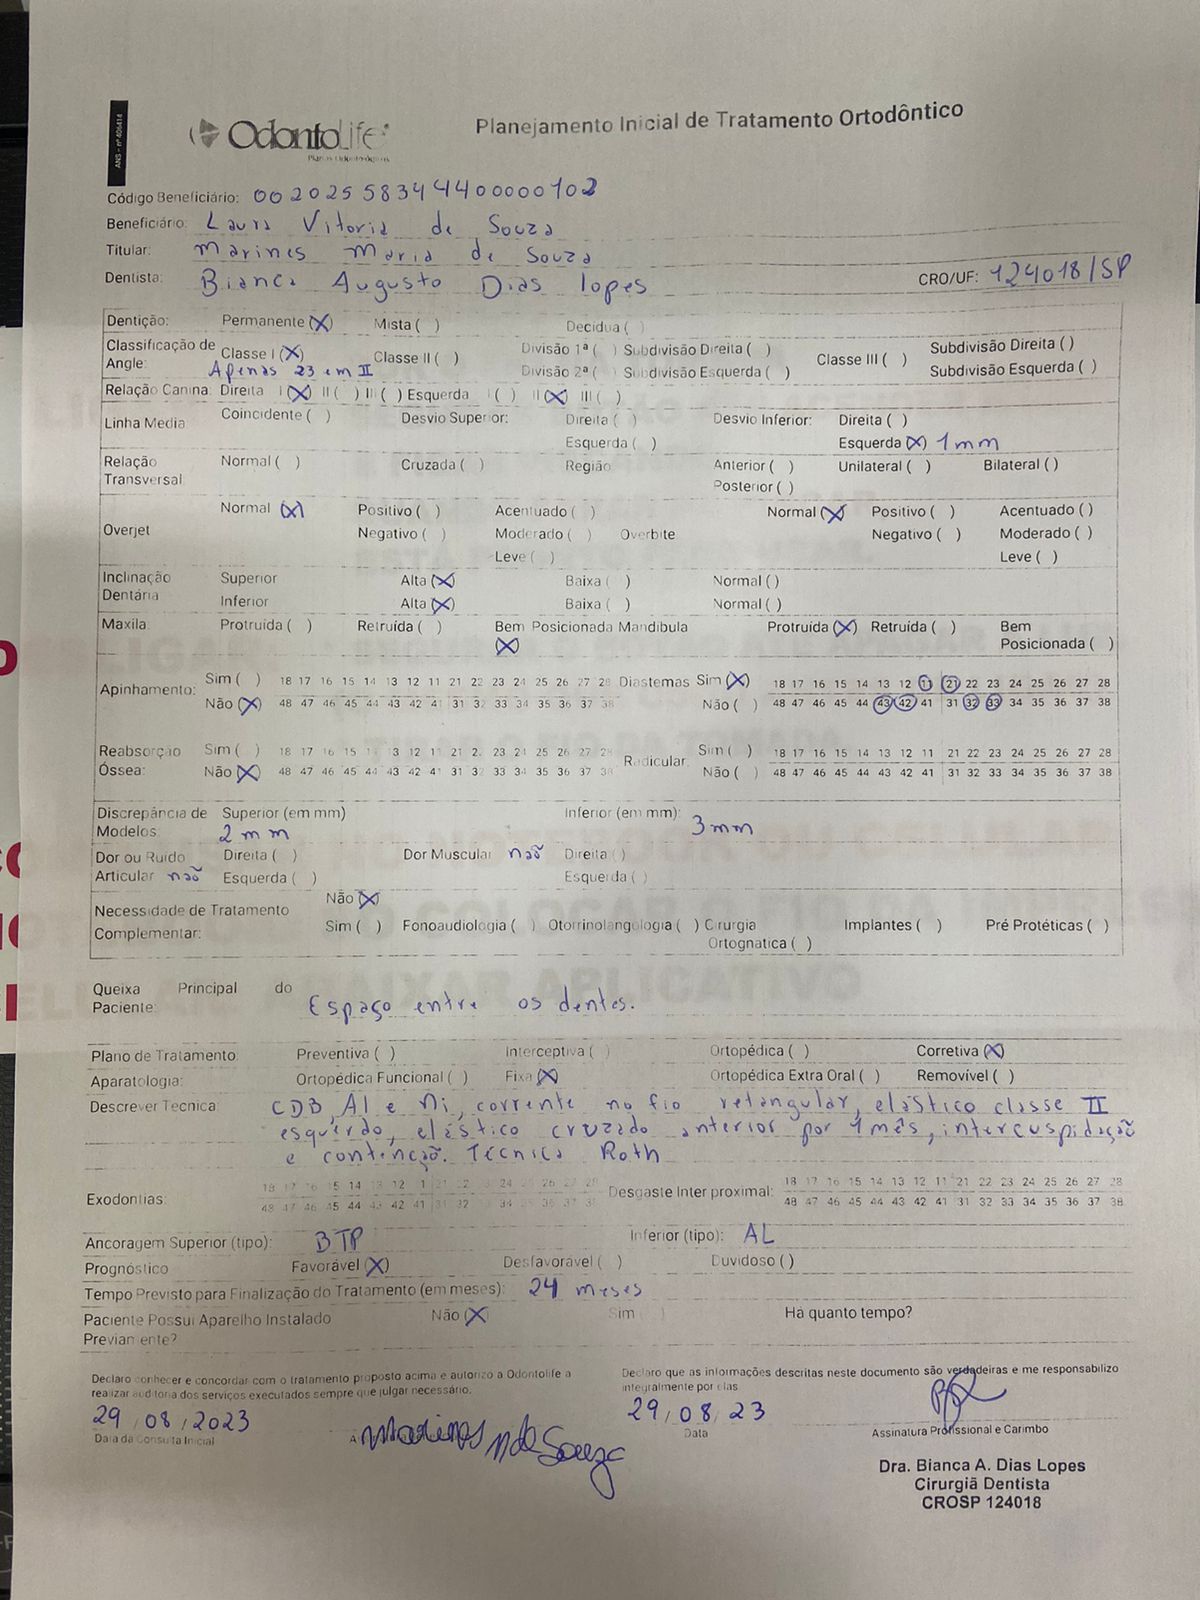 ANS - nº 406414
OdontoLife
Planos Odontológicos
Planejamento Inicial de Tratamento Ortodôntico
Código Beneficiário: 00 2025 58344400000102
Beneficiário: Laura Vitoria de Souza
Titular: Marines Maria de Souza
Dentista: Bianca Augusto Dias lopes CRO/UF: 124018/SP
Dentição: Permanente (X) Mista ( ) Decídua ( )
Classificação de Angle: Classe I (X) Classe II ( ) Divisão 1ª ( ) Subdivisão Direita ( ) Classe III ( ) Subdivisão Direita ( )
Apenas 23 em II Divisão 2ª ( ) Subdivisão Esquerda ( ) Subdivisão Esquerda ( )
Relação Canina: Direita I (X) II ( ) III ( ) Esquerda I ( ) II (X) III ( )
Linha Media Coincidente ( ) Desvio Superior: Direita ( ) Desvio Inferior: Direita ( )
Esquerda ( ) Esquerda (X) 1mm
Relação Transversal Normal ( ) Cruzada ( ) Região Anterior ( ) Unilateral ( ) Bilateral ( )
Posterior ( )
Normal (X) Positivo ( ) Acentuado ( ) Normal (X) Positivo ( ) Acentuado ( )
Overjet Negativo ( ) Moderado ( ) Overbite Negativo ( ) Moderado ( )
Leve ( ) Leve ( )
Inclinação Dentária Superior Alta (X) Baixa ( ) Normal ( )
Inferior Alta (X) Baixa ( ) Normal ( )
Maxila: Protruída ( ) Retruída ( ) Bem Posicionada (X) Mandibula Protruída (X) Retruída ( ) Bem Posicionada ( )
Apinhamento: Sim ( ) 18 17 16 15 14 13 12 11 21 22 23 24 25 26 27 28 Diastemas Sim (X) 18 17 16 15 14 13 12 11 21 22 23 24 25 26 27 28
Não (X) 48 47 46 45 44 43 42 41 31 32 33 34 35 36 37 38 Não ( ) 48 47 46 45 44 43 42 41 31 32 33 34 35 36 37 38
Reabsorção Óssea: Sim ( ) 18 17 16 15 14 13 12 11 21 22 23 24 25 26 27 28 Radicular: Sim ( ) 18 17 16 15 14 13 12 11 21 22 23 24 25 26 27 28
Não (X) 48 47 46 45 44 43 42 41 31 32 33 34 35 36 37 38 Não ( ) 48 47 46 45 44 43 42 41 31 32 33 34 35 36 37 38
Discrepância de Modelos: Superior (em mm) 2 mm Inferior (em mm): 3mm
Dor ou Ruído Articular não Direita ( ) Dor Muscular não Direita ( )
Esquerda ( ) Esquerda ( )
Necessidade de Tratamento Complementar: Não (X)
Sim ( ) Fonoaudiologia ( ) Otorrinolangologia ( ) Cirurgia Ortognatica ( ) Implantes ( ) Pré Protéticas ( )
Queixa Principal do Paciente: Espaço entre os dentes.
Plano de Tratamento: Preventiva ( ) Interceptiva ( ) Ortopédica ( ) Corretiva (X)
Aparatologia: Ortopédica Funcional ( ) Fixa (X) Ortopédica Extra Oral ( ) Removível ( )
Descrever Tecnica: CDB, Al e Ni, corrente no fio retangular, elástico classe II
esquerdo, elástico cruzado anterior por 1 mês, intercuspidação
e contenção. Técnica Roth
Exodontias: 18 17 16 15 14 13 12 1 21 22 23 24 25 26 27 28 Desgaste Inter proximal: 18 17 16 15 14 13 12 11 21 22 23 24 25 26 27 28
48 47 46 45 44 43 42 41 31 32 33 34 35 36 37 38 48 47 46 45 44 43 42 41 31 32 33 34 35 36 37 38
Ancoragem Superior (tipo): BTP Inferior (tipo): AL
Prognóstico Favorável (X) Desfavorável ( ) Duvidoso ( )
Tempo Previsto para Finalização do Tratamento (em meses): 24 meses
Paciente Possui Aparelho Instalado Previamente? Não (X) Sim ( ) Há quanto tempo?
Declaro conhecer e concordar com o tratamento proposto acima e autorizo a Odontolife a
realizar auditoria dos serviços executados sempre que julgar necessário.
Declaro que as informações descritas neste documento são verdadeiras e me responsabilizo
integralmente por elas
29/08/2023
Data da Consulta Inicial
Marines M de Souza
29/08/23
Data
Assinatura Profissional e Carimbo
Dra. Bianca A. Dias Lopes
Cirurgiã Dentista
CROSP 124018